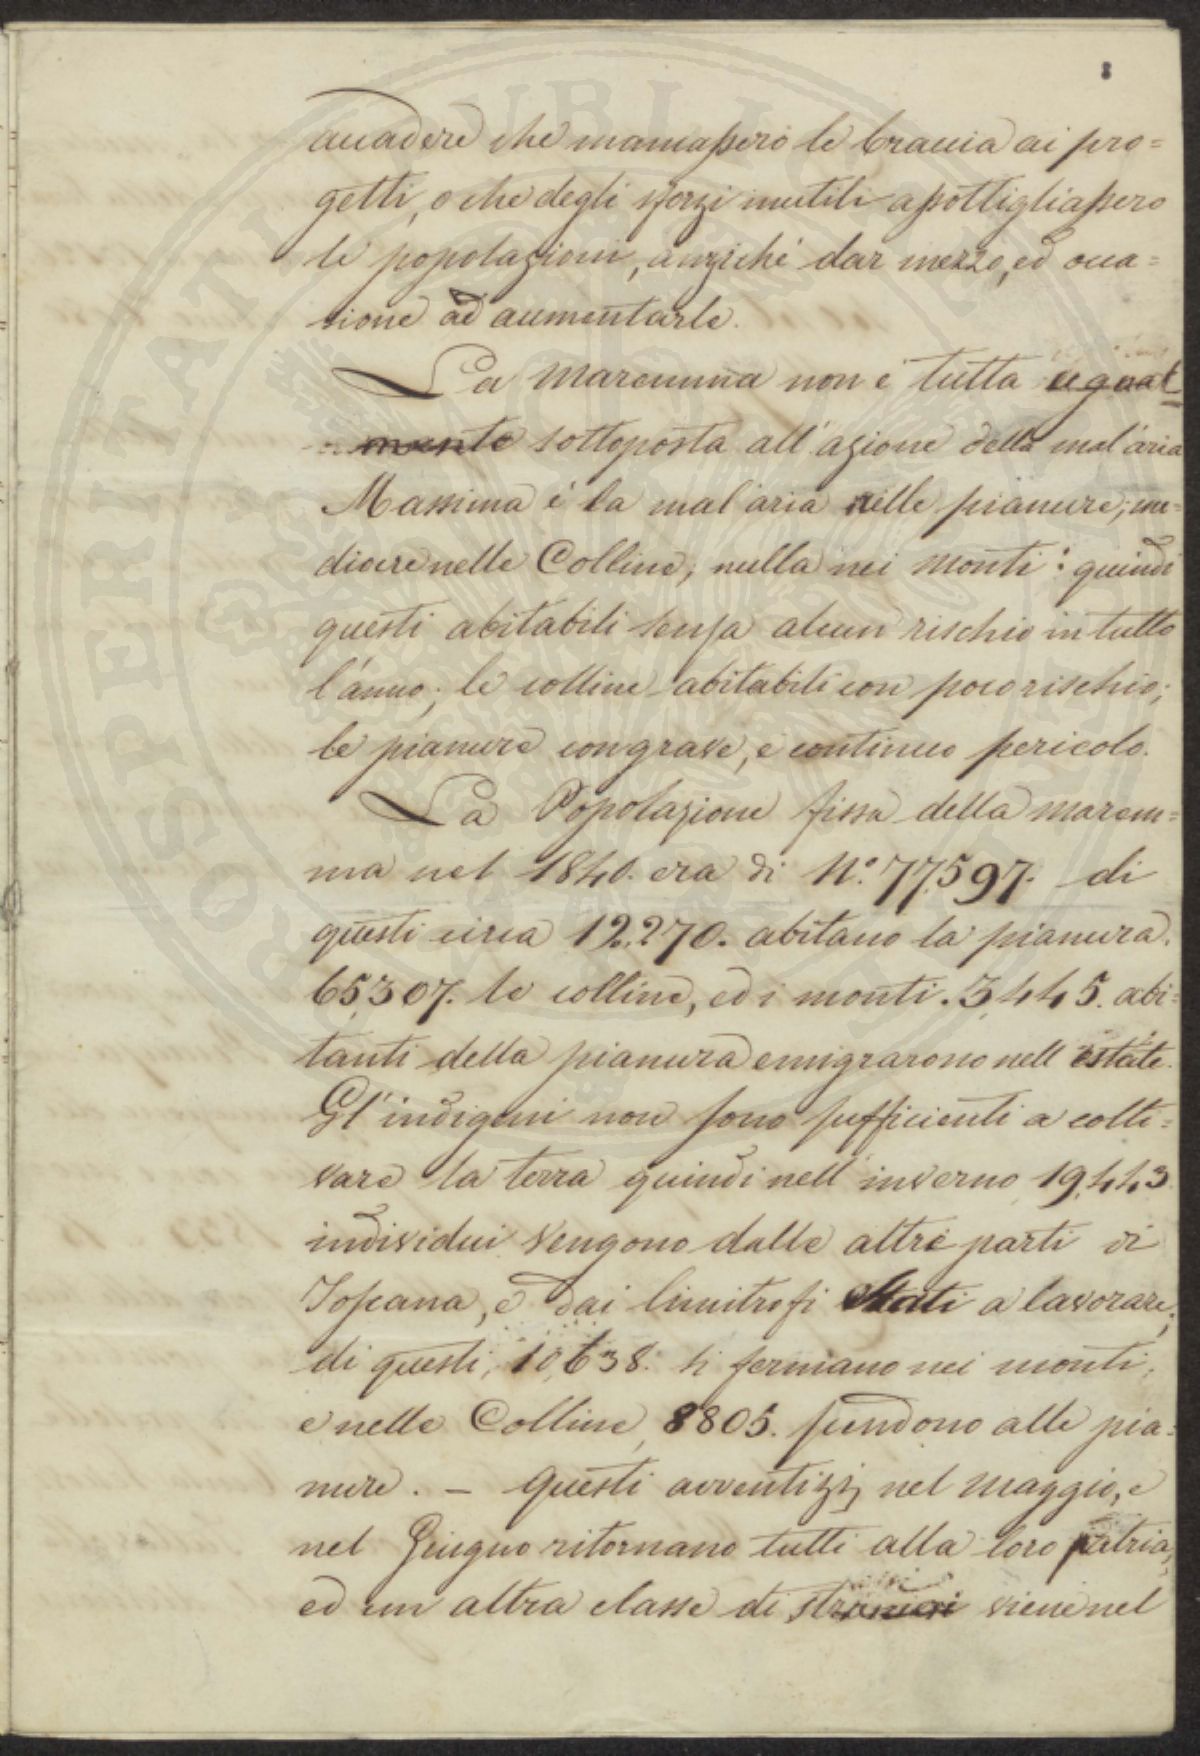 accadere che mancassero le braccia ai pro=
getti, o che degli sforzi inutili assottigliassero
le popolazioni, anziché dar mezzo, ed occa=
sione ad aumentarle.
La Maremma non è tutta egual=
mente sottoposta all'azione della mal'aria
Massima è la mal'aria nelle pianure; me=
diocre nelle Colline; nulla nei Monti: quindi
questi abitabili senza alcun rischio in tutto
l'anno; le colline abitabili con poco rischio;
le pianure con grave, e continuo pericolo.
La Popolazione fissa della Marem=
ma nel 1840. era di N.° 77,597. di
questi circa 12,270. abitano la pianura.
65,307. le colline, ed i monti. 3,445. abi=
tanti della pianura emigrarono nell'estate.
Gl'indigeni non sono sufficienti a colti=
vare la terra quindi nell'inverno 19,443
individui vengono dalle altre parti di
Toscana, e dai limitrofi Stati a lavorare;
di questi, 10,638. si fermano nei monti,
e nelle Colline, 8805. scendono alle pia=
nure. – Questi avventizj nel Maggio, e
nel Giugno ritornano tutti alla loro patria,
ed un altra classe di stranieri viene nel
PROSPERITATI PUBLICAE